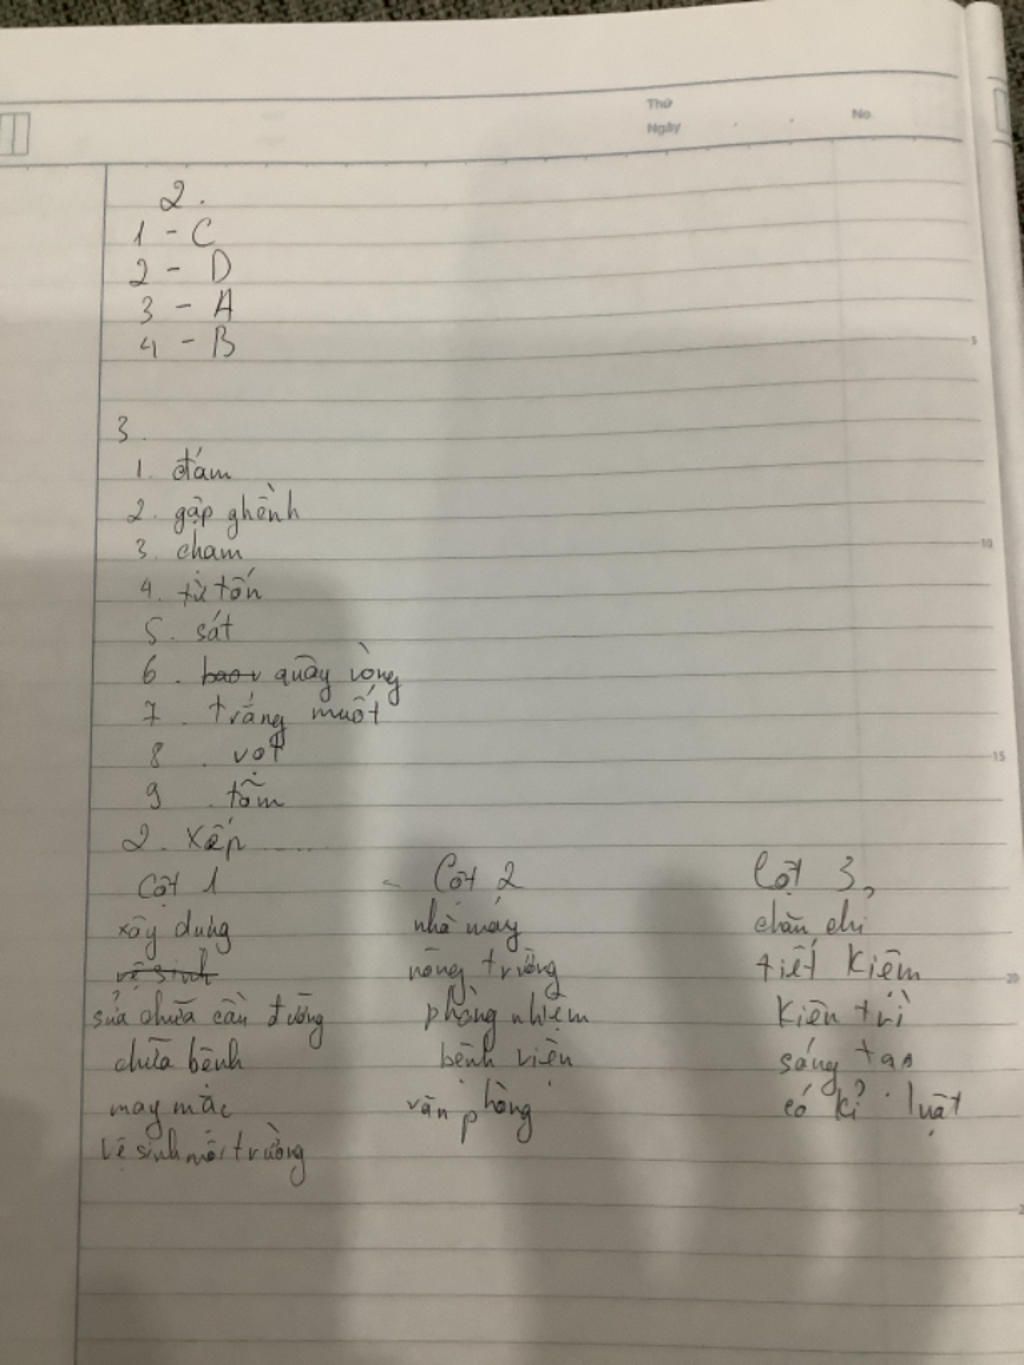 Thứ
Ngày
No
2.
1 - C
2 - D
3 - A
4 - B
5
3.
1. đám
2. gập ghềnh
3. cham
10
4. từ tốn
5. sát
6. quây vòng
7. trắng muốt
8. vọt
15
9. tẫm
2. Xếp .....
Cột 1 Cột 2 Cột 3,
xây dựng nhà máy chăn chỉ
vệ sinh nông trường tiết kiệm
20
sửa chữa cần đường phòng nhiệm kiên trì
chữa bệnh bệnh viện sáng tạo
may mặc văn phòng có kỉ luật
vệ sinh môi trường